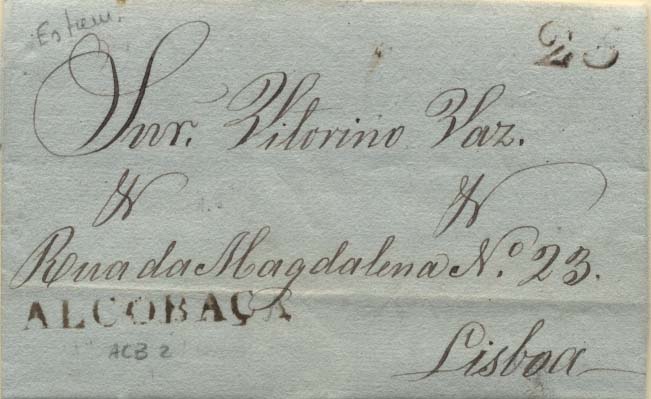 Estrem.
25
Snr. Vitorino Vaz.
Rua da Magdalena N.º 23.
ALCOBAÇA
ACB 2
Lisboa